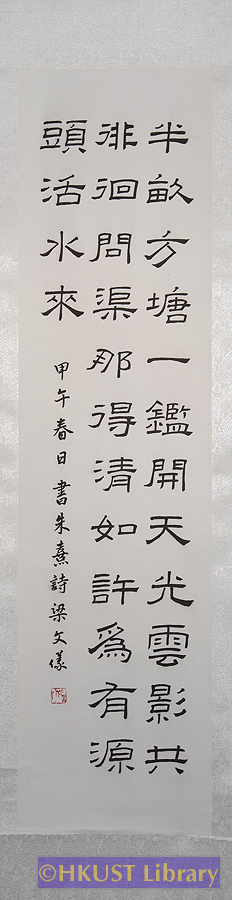 半畝方塘一鑑開天光雲影共
徘徊問渠那得清如許爲有源
頭活水來
甲午春日書朱熹詩梁文儀
©HKUST Library